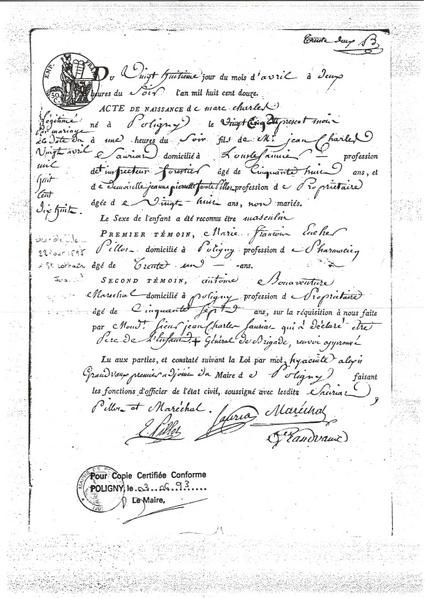 Trente deux B.
DU Vingt huitième jour du mois d'avril à deux
heures du Soir l'an mil huit cent douze.
ACTE DE NAISSANCE de marc charles
né à Poligny le Vingt présent mois
à une heures du Soir fils de M. jean Charles
Sauria domicilié à profession
de inspecteur forestier âgé de Cinquante huit ans, et
de Demoiselle jeanne pierrette Pillot profession de Propriétaire
âgée de Vingt huit ans, non mariés.
Le Sexe de l'enfant a été reconnu être masculin
PREMIER TÉMOIN, Marie françois
Pillot domicilié à Poligny profession de Pharmacien
âgé de Trente un ans.
SECOND TÉMOIN, antoine Bonaventure
Maréchal domicilié à poligny profession de Propriétaire
âgé de Cinquante Sept ans, sur la réquisition à nous faite
par Sieur jean Charles Sauria qui a déclaré être
Père de l'enfant Général de Brigade, renvoi approuvé
Lu aux parties, et constaté suivant la Loi par moi hyacinte alexis
Grandvaux premier adjoint du Maire de Poligny faisant
les fonctions d'officier de l'état civil, soussigné avec lesdits Sauria
Pillot et Maréchal.
légitimé
par mariage
à la date du
Vingt avril
mil
huit
Cent
dix huit
Pillot Sauria Maréchal
Grandvaux
Pour Copie Certifiée Conforme
POLIGNY, le
Le Maire,